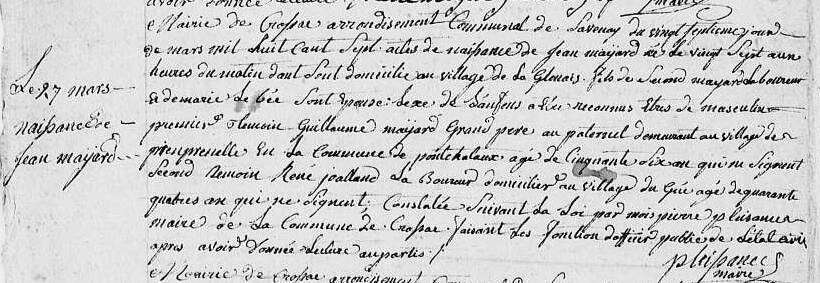 Mairie de Crossac arrondisement Communal de Savenay du vingt septieme jour
de mars mil huit Cant Sept actes de naissance de jean mayard né Le vingt Sept a un
heures du matin dant Sont domicilie au village de La Glenais. fils de Second mayard Laboureur
& de marie Le Sont Epouse: Lexe de Lanfens a Eté reconnus Etres de masculin
Le 27 mars
naissance de
jean mayard
premier temoin Guillaume mayard Grand pere au paternel demeurant au village de
En La Commune de pontchataux age de Cinquante dix an qui ne Signent
Second temoin René joalland La Boureur domicilier au village du Gué age de quarante
quatres an qui ne Signent; Constatée Suivant La Loi par mois pierre plaisance
maire de La Commune de Crossac faisant Les fonction d'officier public de L'etat civil
apres avoir donnée Lecture au partis /
plaisance
maire
Mairie de Crossac arrondisement